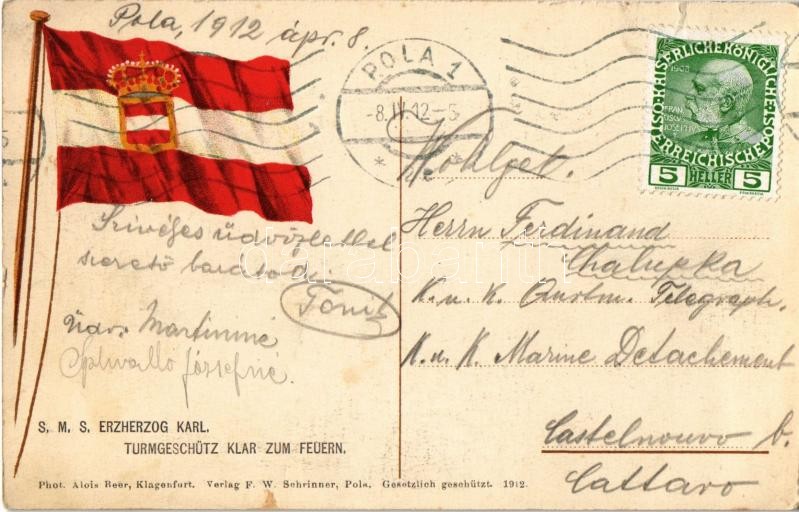 Pola, 1912 ápr. 8.
POLA 1
-8.IV.12-5
* *
1908
ÖST. KAISERLICHE KÖNIGLICHE POST
ERREICHISCHE
5 HELLER 5
Wohlgeb.
Herrn Ferdinand
Chalupka
K. u. K. Telegraph.
K. u. K. Marine Detachement
Castelnuovo b.
Cattaro
Szívélyes üdvözlettel
szerető barátod
Tonit
Üdv. Martinné
Józsefné.
S. M. S. ERZHERZOG KARL.
TURMGESCHÜTZ KLAR ZUM FEUERN.
Phot. Alois Beer, Klagenfurt. Verlag F. W. Schrinner, Pola. Gesetzlich geschützt. 1912.
darabanth